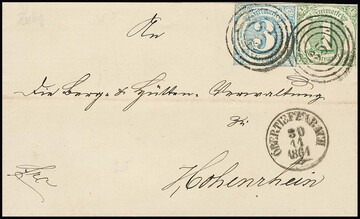 An
3
1
Die Berg- & Hütten-Verwaltung
zu
OBERTIEFENBACH
30
11
1861
Hohenrhein